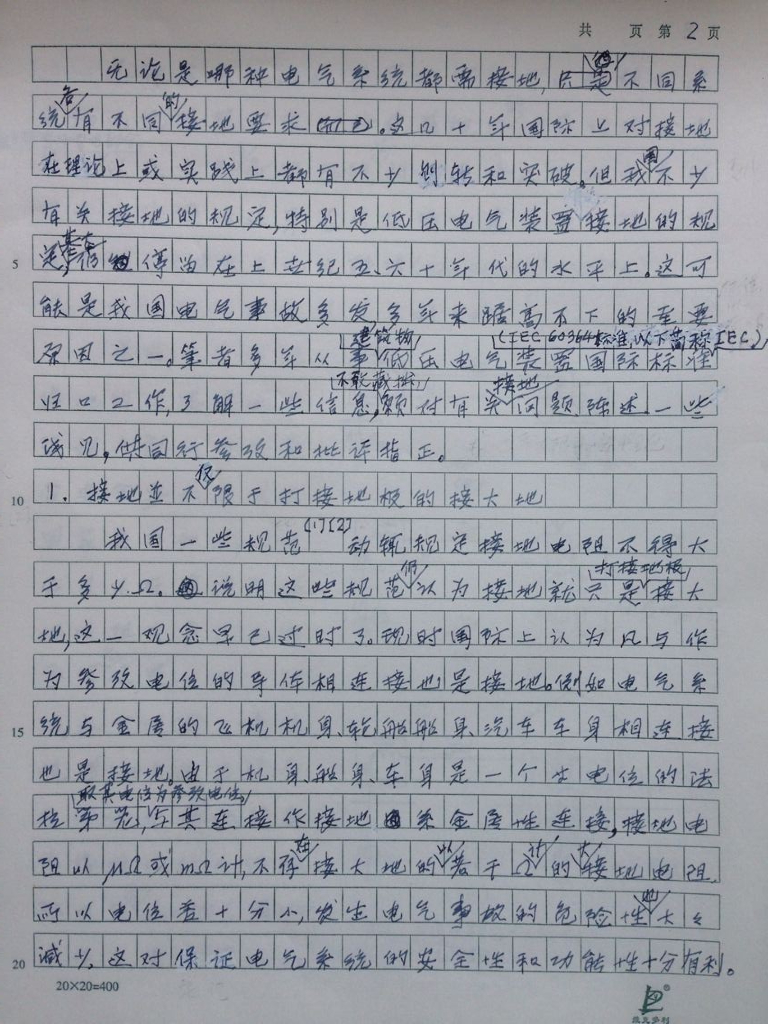 共 页 第 2 页
无论是哪种电气系统都需接地,只是不同系
统各有不同的接地要求。这几十年国际上对接地
在理论上或实践上都有不少创转和突破。但我国不少
有关接地的规定,特别是低压电气装置接地的规
定,基本仍停留在上世纪五、六十年代的水平上。这可
能是我国电气事故多发多年来踞高不下的重要
原因之一。笔者多年从事建筑物低压电气装置国际标准(IEC 60364标准,以下简称IEC)
归口工作,了解一些信息,不敢藏拙,愿对有关接地问题陈述一些
浅见,供同行参考和批评指正。
10 1. 接地并不仅限于打接地极的接大地
我国一些规范(1)(2)动辄规定接地电阻不得大
于多少Ω。说明这些规范仍认为接地就只是打接地极接大
地,这一观念早已过时了。现时国际上认为凡与作
为参考电位的导体相连接也是接地。例如电气系
15 统与金属的飞机机身、轮船船身、汽车车身相连接
也是接地。由于机身、船身、车身是一个等电位的法
拉第笼,取其电位为参考电位,与其连接作接地系金属性连接,接地电
阻以μΩ或mΩ计,不存在接大地的以若干Ω计的大接地电阻,
所以电位差十分小,发生电气事故的危险性也大大
20 减少,这对保证电气系统的安全性和功能性十分有利。
5
20×20=400